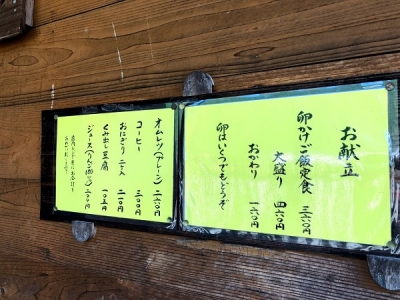 お献立
卵かけご飯定食 三六〇円
大盛り 四六〇円
おかわり 一六〇円
卵はいくつでもどうぞ
オムレツ(プレーン) 二六〇円
コーヒー 三〇〇円
おにぎり 二ケ入 二一〇円
くみ出し豆腐 一〇五円